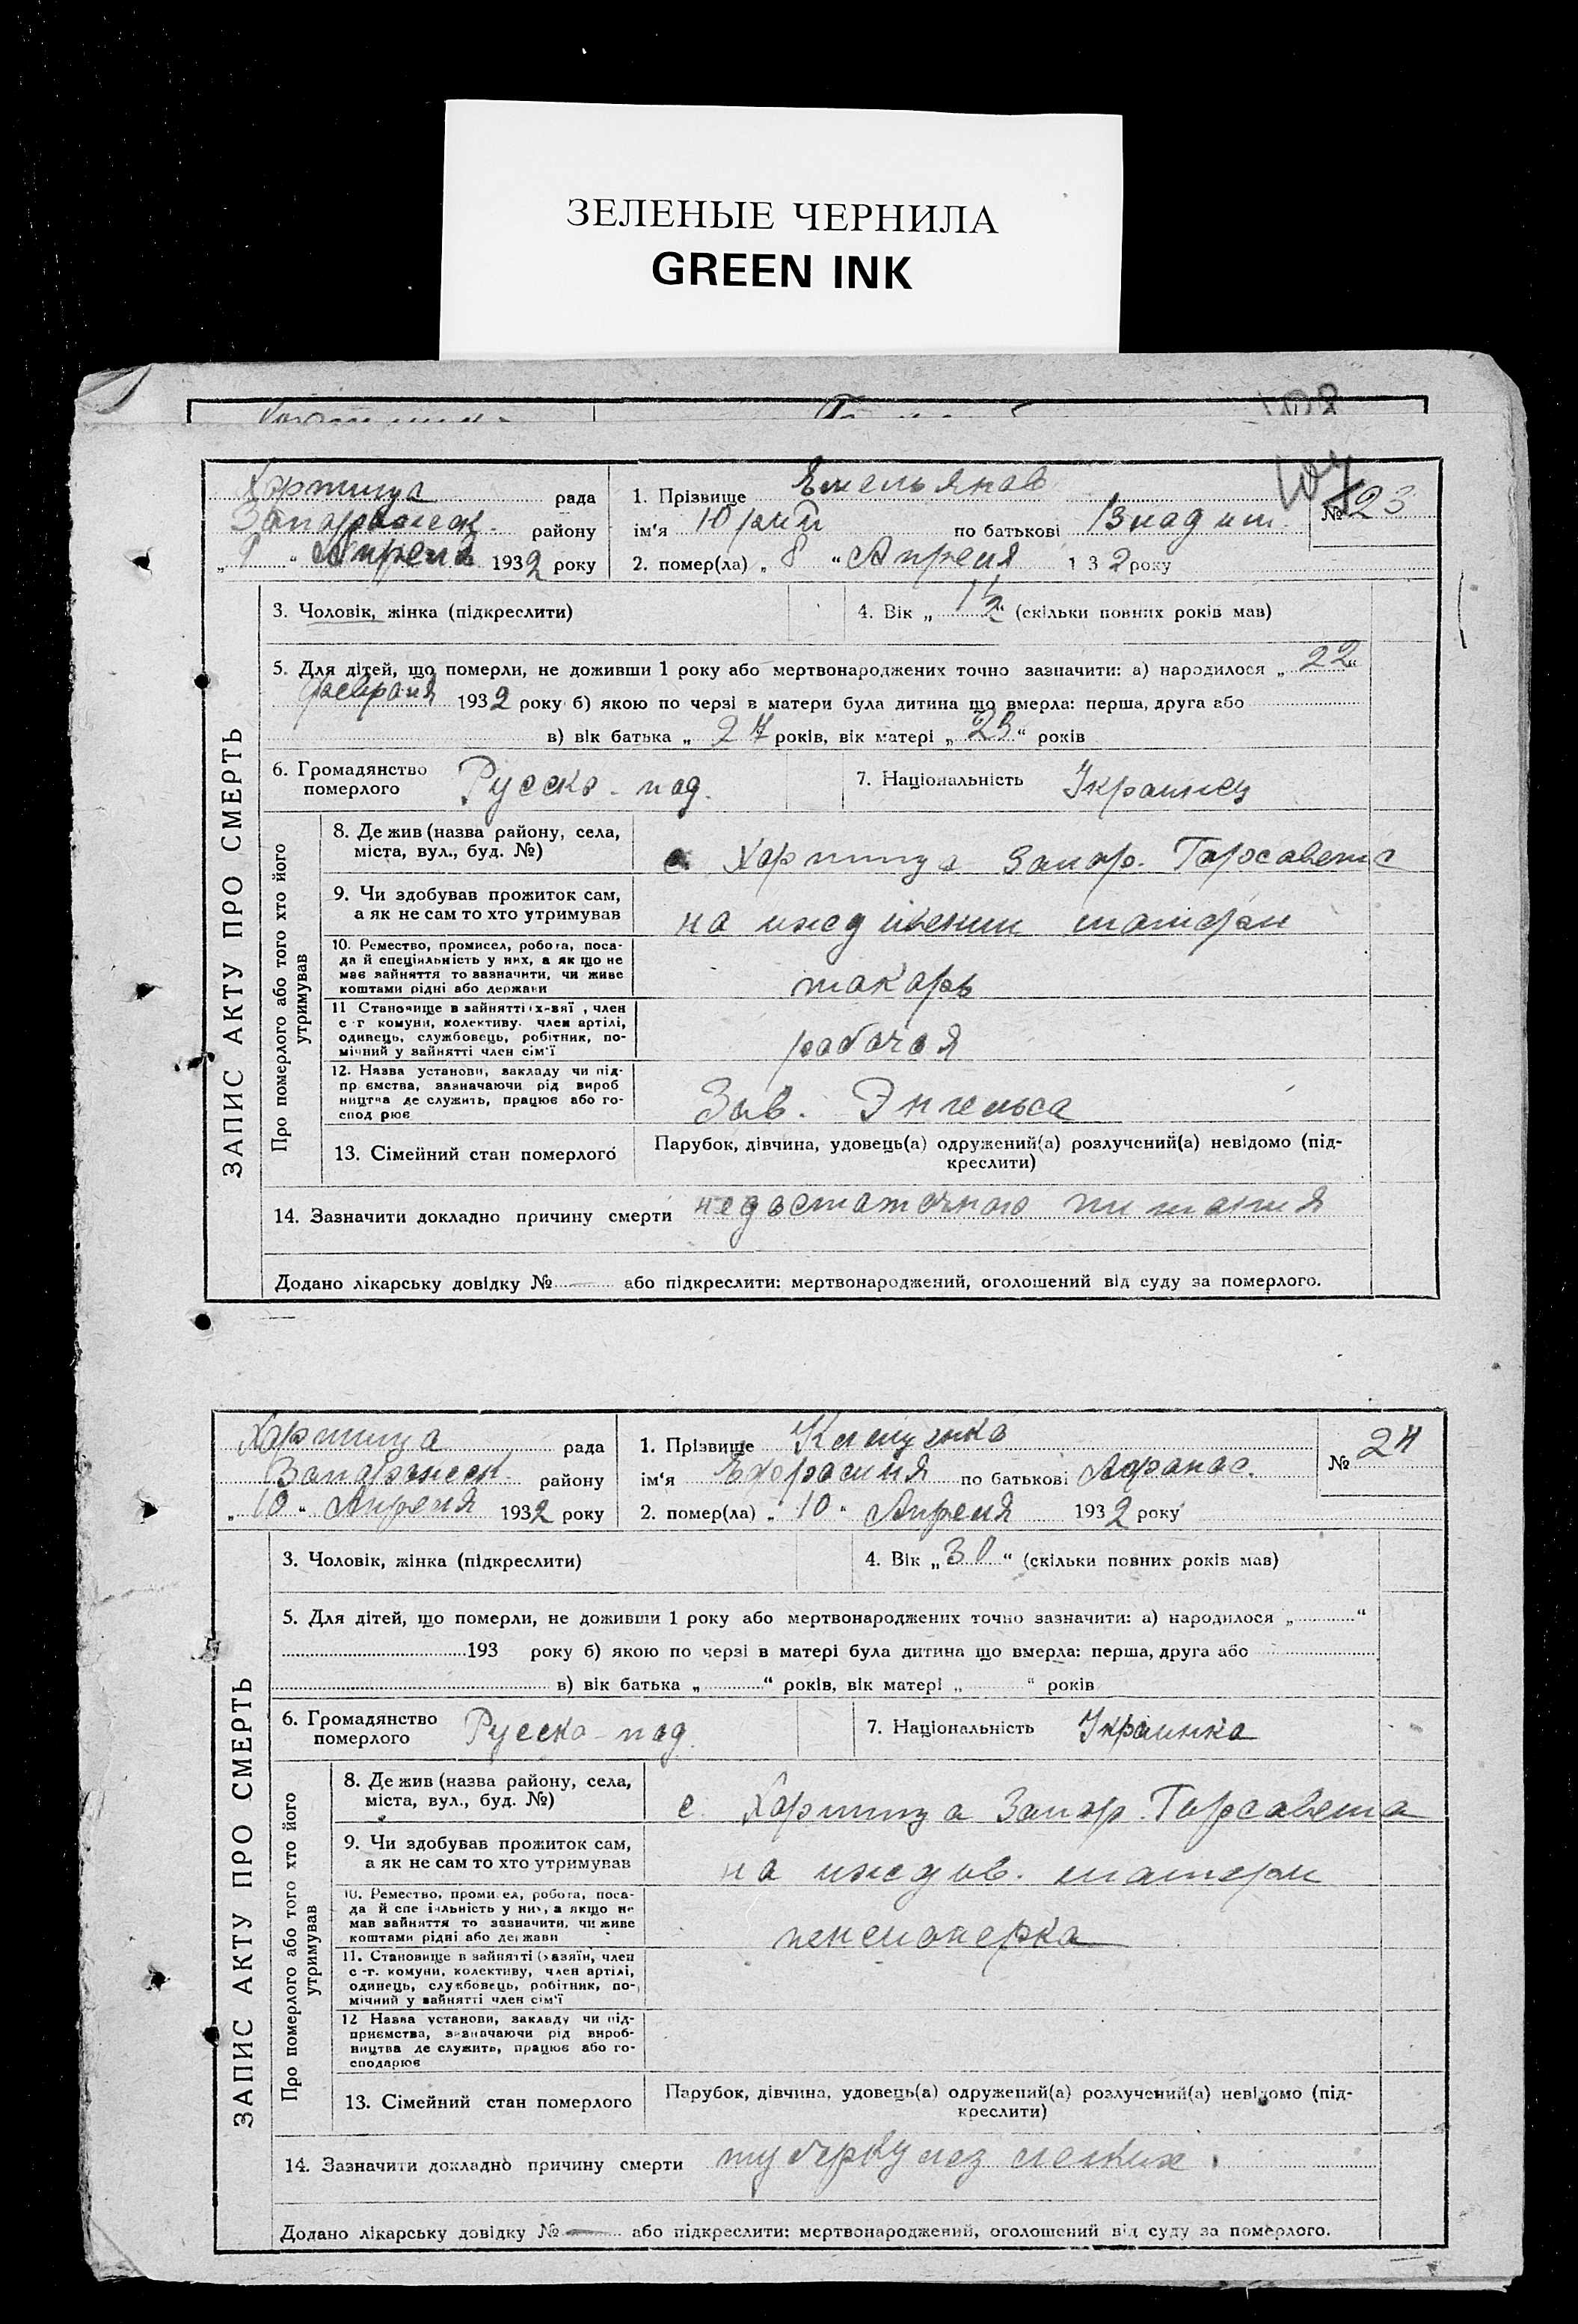 ЗЕЛЕНЫЕ ЧЕРНИЛА
GREEN INK
ЗАПИС АКТУ ПРО СМЕРТЬ
Хортица рада
района
„ 9 “ Апреля 1932 року
1. Прізвище Емельянов
ім'я Юрий по батькові
2. помер(ла) „ 8 “ Апреля 1 3 2 року
№ 23
3. Чоловік, жінка (підкреслити)
4. Вік „ “ (скільки повних років мав)
5. Для дітей, що померли, не доживши 1 року або мертвонароджених точно зазначити: а) народилося „ 22 “
февраля 1932 року б) якою по черзі в матери була дитина що вмерла: перша, друга або
в) вік батька „ 27 років, вік матері „ 23 “ років
6. Громадянство померлого Русско-под.
7. Національність Украинец
Про померлого або того хто його утримував
8. Де жив (назва району, села,
міста, вул., буд. №)
с Хортица Запор. Горсовета
9. Чи здобував прожиток сам,
а як не сам то хто утримував
на иждивении
10. Ремество, промисел, робота, поса-
да й спеціяльність у них, а як що не
має зайняття то зазначити, чи живе
коштами рідні або держави
токарь
11 Становище в зайнятті член
с г комуни, колективу. член артілі,
одинець, службовець, робітник, по-
мічний у зайнятті член сім'ї
рабочая
12. Назва установи, закладу чи під-
пр ємства, зазначаючи рід вироб
ництва де служить, працює або го-
спод рює
Зав. Энгельса
13. Сімейний стан померлого
Парубок, дівчина, удовець(а) одружений(а) розлучений(а) невідомо (під-
креслити)
14. Зазначити докладно причину смерти недостаточного питания
Додано лікарську довідку № — або підкреслити: мертвонароджений, оголошений від суду за померлого.
ЗАПИС АКТУ ПРО СМЕРТЬ
Хортица рада
району
„ 10 “ Апреля 1932 року
1. Прізвище
ім'я Ефросиния по батькові Афанас.
2. помер(ла) „ 10 “ Апреля 1932 року
№ 24
3. Чоловік, жінка (підкреслити)
4. Вік „ 30 “ (скільки повних років мав)
5. Для дітей, що померли, не доживши 1 року або мертвонароджених точно зазначити: а) народилося „ “
193 року б) якою по черзі в матері була дитина що вмерла: перша, друга або
в) вік батька „ “ років, вік матері „ “ років
6. Громадянство померлого Русско-под.
7. Національність Украинка
Про померлого або того хто його утримував
8. Де жив (назва району, села,
міста, вул., буд. №)
с. Хортица Запор. Горсовета
9. Чи здобував прожиток сам,
а як не сам то хто утримував
на иждив. матери
10. Ремество, промисел, робота, поса-
да й спеціяльність у них, а якщо не
мав зайняття то зазначити, чи живе
коштами рідні або держави
пенсионерка
11. Становище в зайнятті (хазяїн, член
с-г. комуни, колективу, член артілі,
одинець, службовець, робітник, по-
мічний у зайнятті член сім'ї
12 Назва установи, закладу чи під-
приємства, зазначаючи рід вироб-
ництва де служить, працює або го-
сподарює
13. Сімейний стан померлого
Парубок, дівчина, удовець(а) одружений(а) розлучений(а) невідомо (під-
креслити)
14. Зазначити докладно причину смерти туберкулез легких
Додано лікарську довідку № — або підкреслити: мертвонароджений, оголошений від суду за померлого.